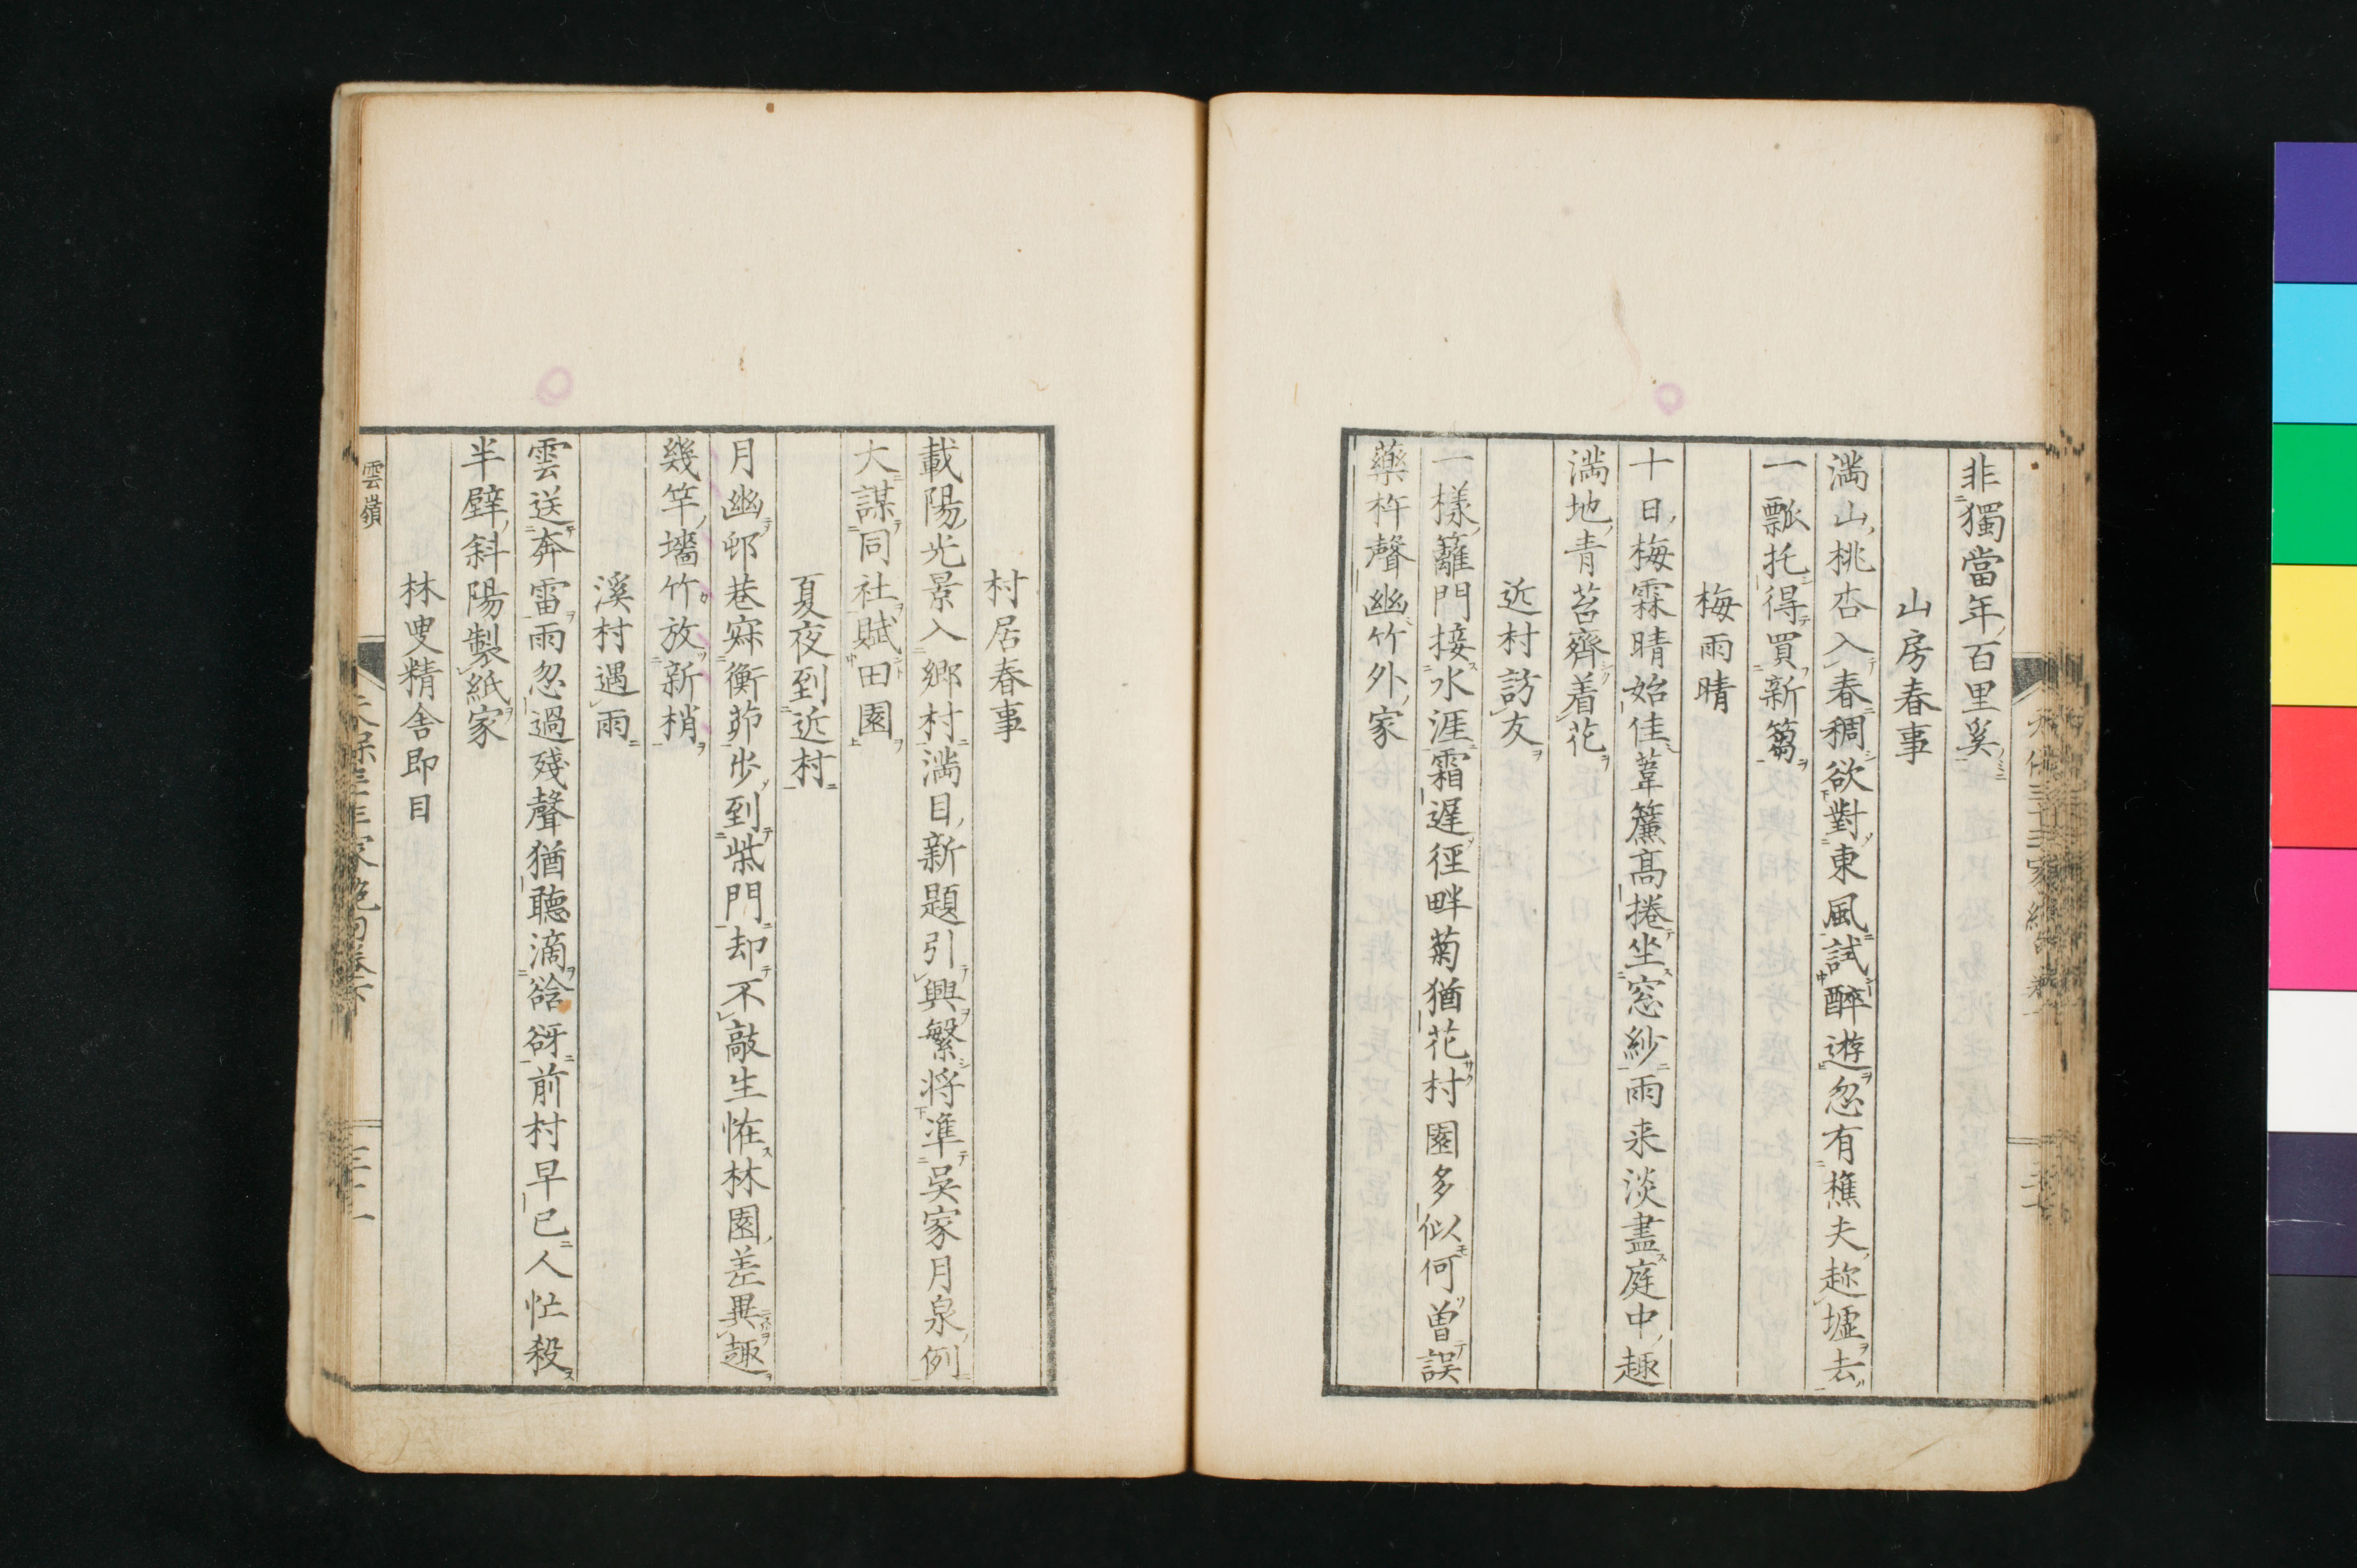 非獨當年百里奚
山房春事
滿山桃杏入春稠欲對東風試醉遊忽有樵夫趂墟去
一瓢托得買新篘
梅雨晴
十日梅霖晴始佳葦簾髙捲坐窓紗雨来淡盡庭中趣
滿地青苔齊着花
近村訪友
一樣籬門接水涯霜遅徑畔菊猶花村園多似何曽誤
藥杵聲幽竹外家
村居春事
載陽光景入郷村滿目新題引興繁将準吳家月泉例
大謀同社賦田園
夏夜到近村
月幽邨巷寂衡茆步到柴門却不敲生怪林園差異趣
幾竿墻竹放新梢
溪村遇雨
雲送奔雷雨忽過殘聲猶聴滴谽谺前村早已人忙殺
半壁斜陽製紙家
林叟精舎即目
雲嶺